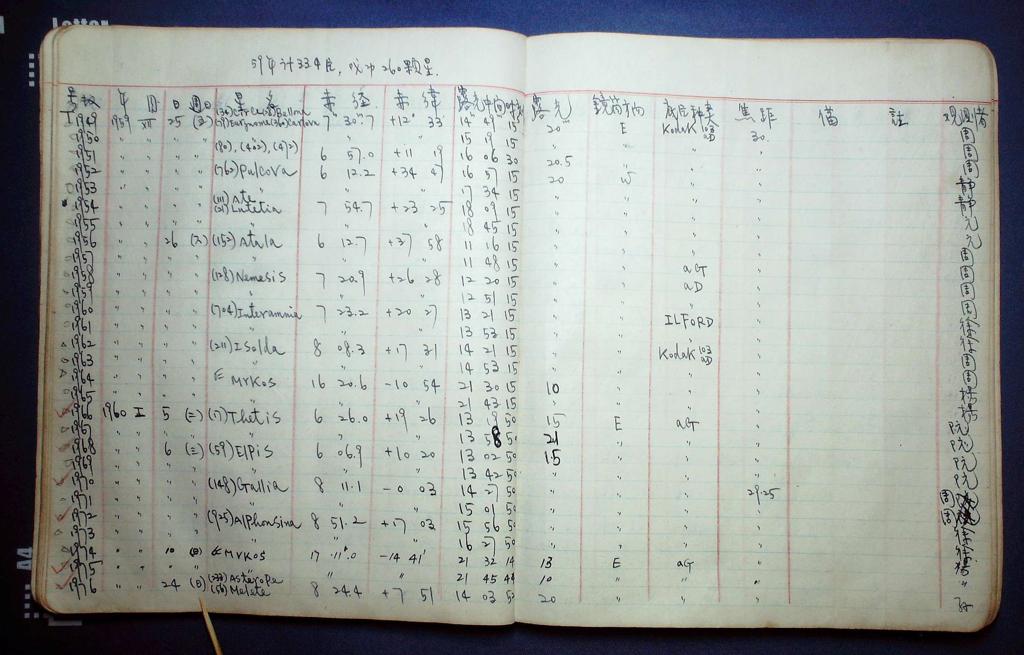 59年计334片, 成功260颗星.
号数 年 月 日 週日 星名 赤经 赤纬 露光中间时刻 露光 镜筒方向 底片种类 焦距 备 註 观测者
I 1949 1959 XII 25 7 30.7 +12° 33' 14 49 15 20 E Kodak 103aD 30.
1950 〃 〃 〃 〃 15 19 15 〃 〃 〃 〃 周
1951 〃 〃 〃 (80), (402), (472) 6 57.0 +11 19 16 06 30 20.5 〃 〃 〃 周
1952 〃 〃 〃 (762) Pulcova 6 12.2 +34 47 16 57 15 20 W 〃 〃
1953 〃 〃 〃 〃 17 34 15 〃 〃 〃 〃 静
1954 〃 〃 〃 (111) Ate (21) Lutetia 7 54.7 +23 25 18 09 15 〃 〃 〃 〃 静
1955 〃 〃 〃 〃 18 45 15 〃 〃 〃 〃
1956 〃 〃 26 (六) (152) Atala 6 12.7 +37 58 11 16 15 〃 〃 〃 〃
1957 〃 〃 〃 〃 11 48 15 〃 〃 〃 〃 周
1958 〃 〃 〃 (128) Nemesis 7 20.9 +26 28 12 20 15 〃 〃 aG 〃 周
1959 〃 〃 〃 〃 12 51 15 〃 〃 aD 〃 周
1960 〃 〃 〃 (704) Interamnia 7 23.2 +20 27 13 21 15 〃 〃 〃 〃
1961 〃 〃 〃 〃 13 53 15 〃 〃 ILFORD 〃
1962 〃 〃 〃 (211) Isolda 8 08.3 +17 31 14 21 15 〃 〃 Kodak 103aD 〃
1963 〃 〃 〃 〃 14 53 15 〃 〃 〃 〃 周
1964 〃 〃 〃 Mrkos 16 20.6 -10 54 21 30 15 10 〃 〃 〃
1965 〃 〃 〃 〃 21 43 15 〃 〃 〃 〃
1966 1960 I 5 (二) (17) Thetis 6 26.0 +19 26 13 19 50 15 E aG 〃
1967 〃 〃 〃 〃 13 58 50 21 〃 〃 〃
1968 〃 〃 6 (三) (59) Elpis 6 06.9 +10 20 13 02 50 15 〃 〃 〃
1969 〃 〃 〃 〃 13 42 50 〃 〃 〃 〃
1970 〃 〃 〃 (148) Gallia 8 11.1 -0 03 14 27 50 〃 〃 〃 29.25
1971 〃 〃 〃 〃 15 01 50 〃 〃 〃 〃 周
1972 〃 〃 〃 (925) Alphonsina 8 51.2 +17 03 15 56 50 〃 〃 〃 〃 周
1973 〃 〃 〃 〃 16 27 50 〃 〃 〃 〃
1974 〃 〃 10 (日) Mrkos 17 11.0 -14 41' 21 32 14 13 E aG 〃
1975 〃 〃 〃 〃 〃 21 45 44 10 〃 〃 〃 〃
1976 〃 〃 24 (日) (233) Asterope (56) Melete 8 24.4 +7 51 14 03 50 20 〃 〃 〃